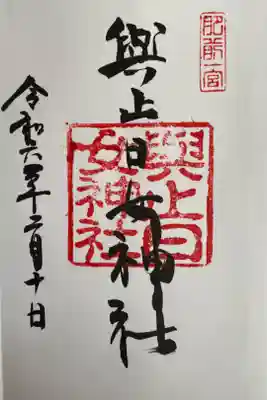 肥前一宮
與止日女神社
與止日女神社
令和六年二月十日